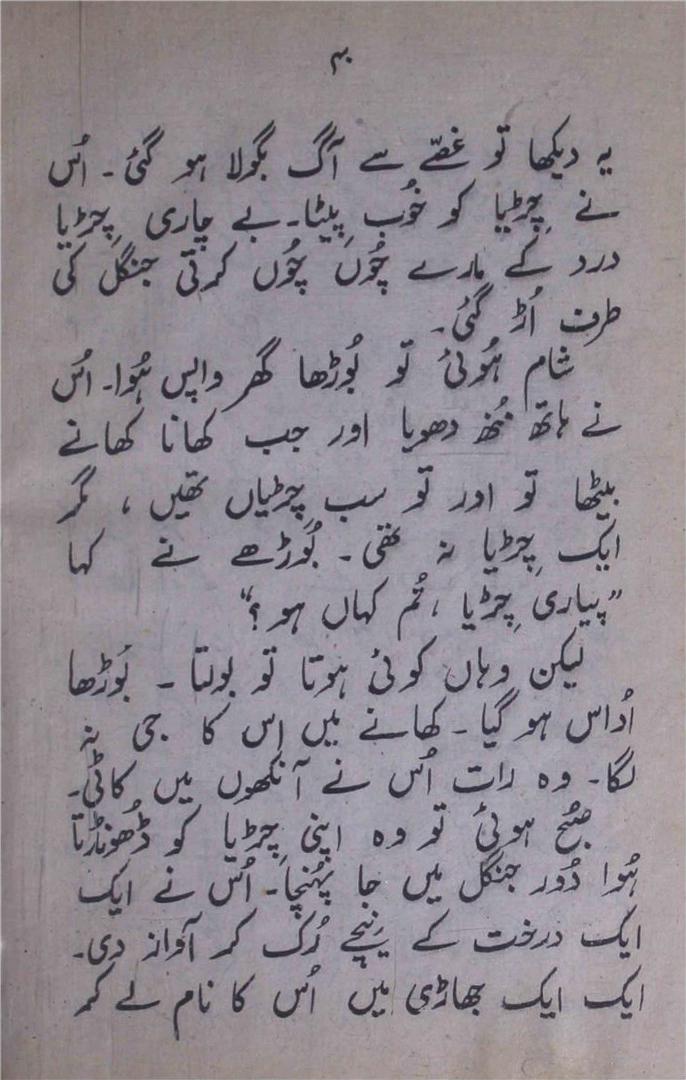 ۴
یہ دیکھا تو غصّے سے آگ بگولا ہو گئی۔ اُس
نے چِڑیا کو خُوب پِیٹا۔ بے چاری چِڑیا
درد کے مارے چُوں چُوں کرتی جنگل کی
طرف اُڑ گئی۔
شام ہُوئی تو بُوڑھا گھر واپس ہُوا۔ اُس
نے ہاتھ مُنھ دھویا اور جب کھانا کھانے
بیٹھا تو اور تو سب چِڑیاں تھیں ، مگر
ایک چِڑیا نہ تھی۔ بُوڑھے نے کہا
”پیاری چِڑیا ، تُم کہاں ہو ؟“
لیکن وہاں کوئی ہوتا تو بولتا ۔ بُوڑھا
اُداس ہو گیا۔ کھانے میں اِس کا جی نہ
لگا۔ وہ رات اُس نے آنکھوں میں کاٹی۔
صُبح ہوئی تو وہ اپنی چِڑیا کو ڈُھونڈتا
ہُوا دُور جنگل میں جا پہُنچا۔ اُس نے ایک
ایک درخت کے نِیچے رُک کر آواز دی۔
ایک ایک جھاڑی میں اُس کا نام لے کر